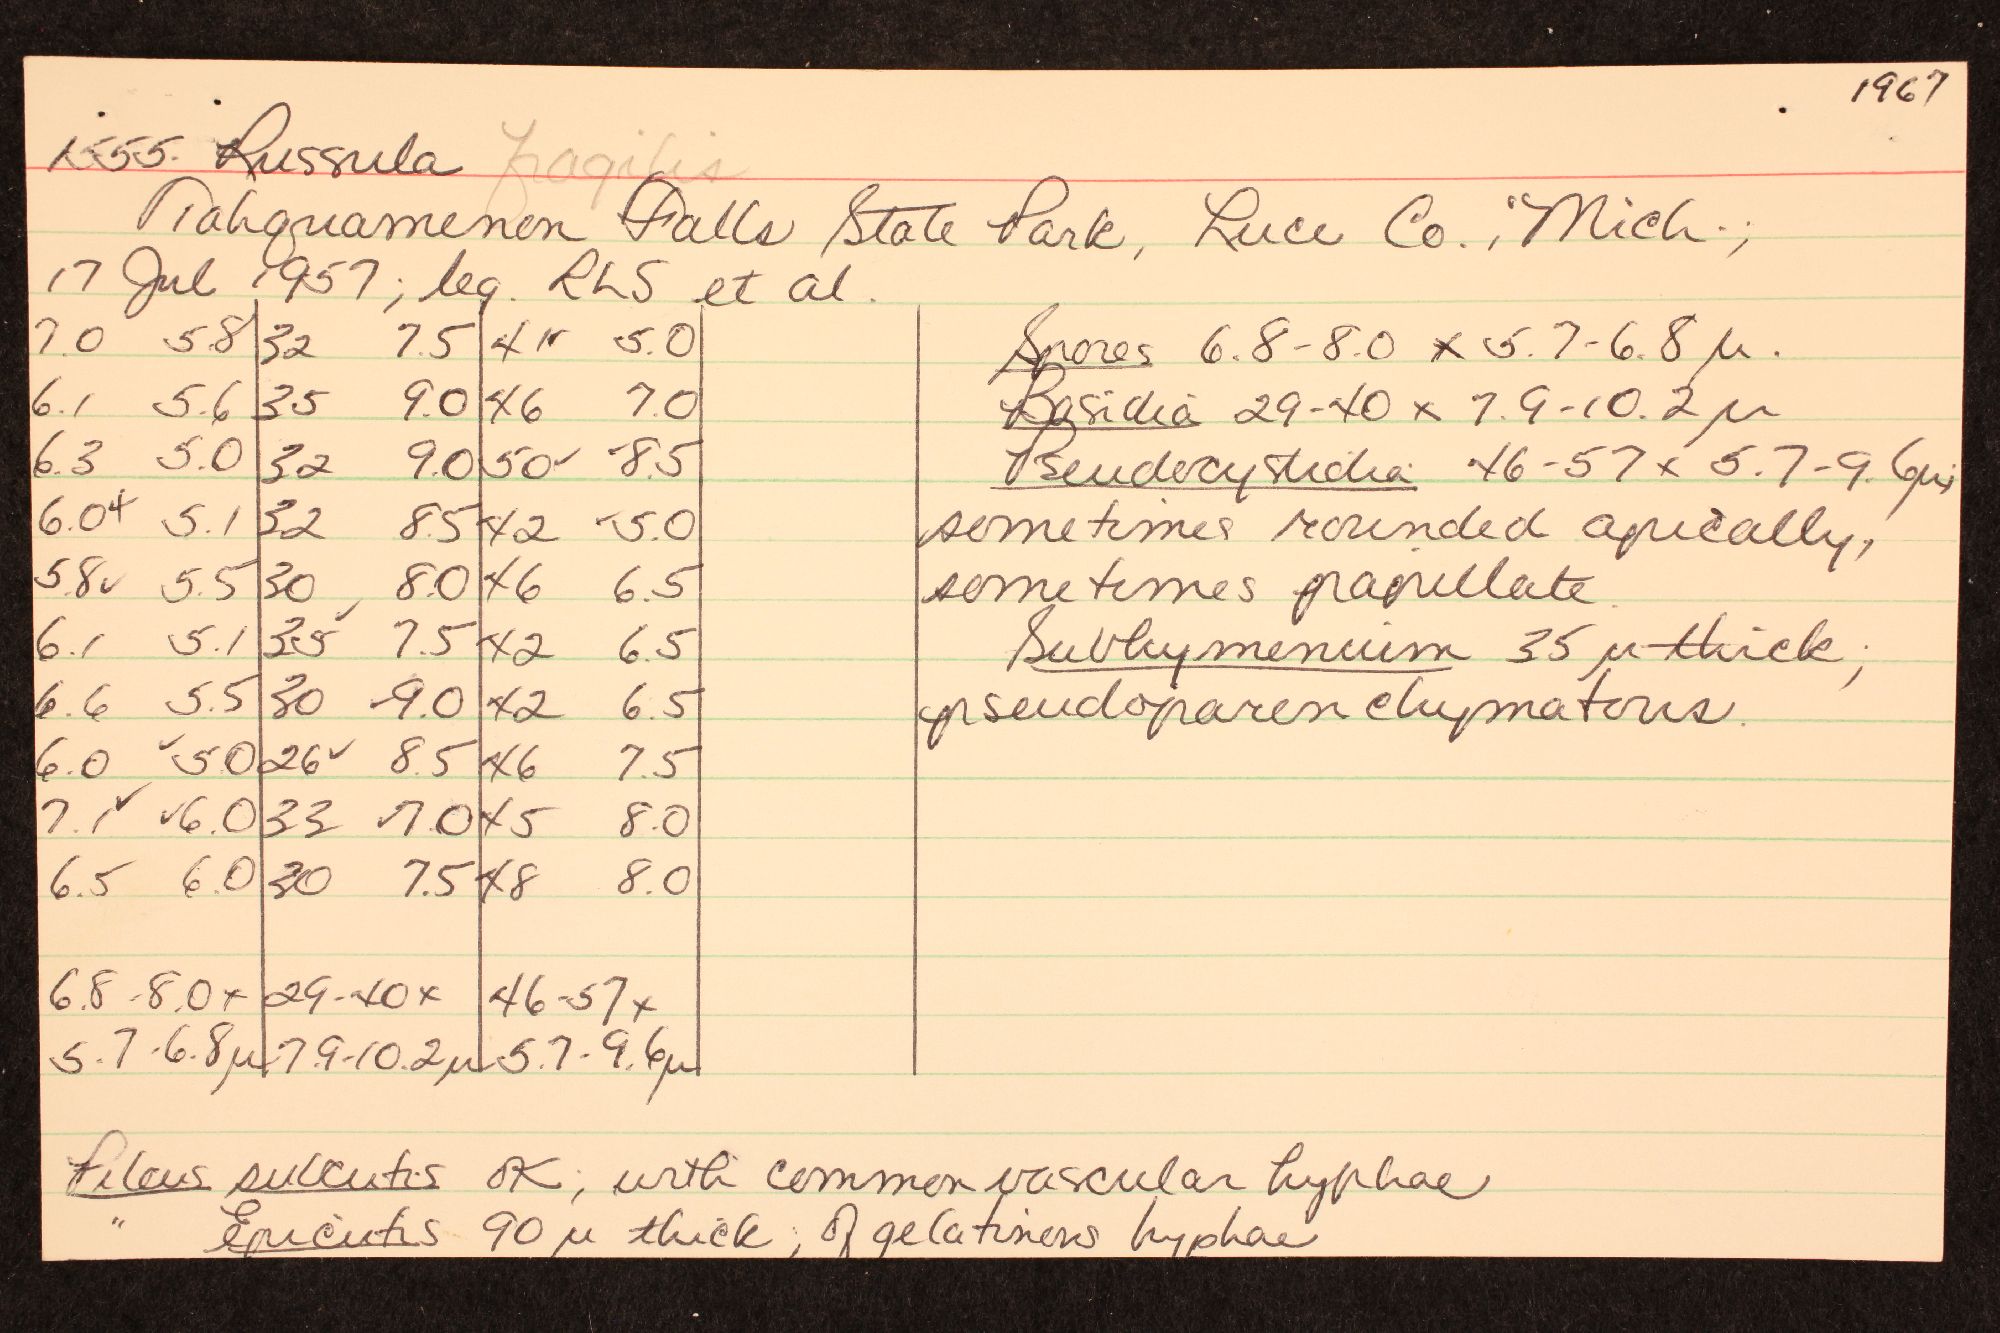 1967
1555. Russula fragilis
Tahquamenon Falls State Park, Luce Co., Mich.;
17 Jul 1957; leg. RLS et al.
7.0 5.8 32 7.5 41 5.0
6.1 5.6 35 9.0 46 7.0
6.3 5.0 32 9.0 50✓ 8.5
6.0 5.1 32 8.5 42 5.0
5.8✓ 5.5 30 8.0 46 6.5
6.1 5.1 35✓ 7.5 42 6.5
6.6 5.5 30 9.0 42 6.5
6.0 ✓5.0 26✓ 8.5 46 7.5
7.1✓ ✓6.0 33 ✓7.0 45 8.0
6.5 6.0 30 7.5 48 8.0
6.8-8.0 x 29-40 x 46-57 x
5.7-6.8 µ 7.9-10.2 µ 5.7-9.6 µ
Spores 6.8-8.0 x 5.7-6.8 µ.
Basidia 29-40 x 7.9-10.2 µ
Pseudocystidia 46-57 x 5.7-9.6 µ;
sometimes rounded apically,
sometimes papillate.
Subhymenium 35 µ thick;
pseudoparenchymatous.
Pileus subcutis OK; with common vascular hyphae
" Epicutis 90 µ thick; of gelatinous hyphae